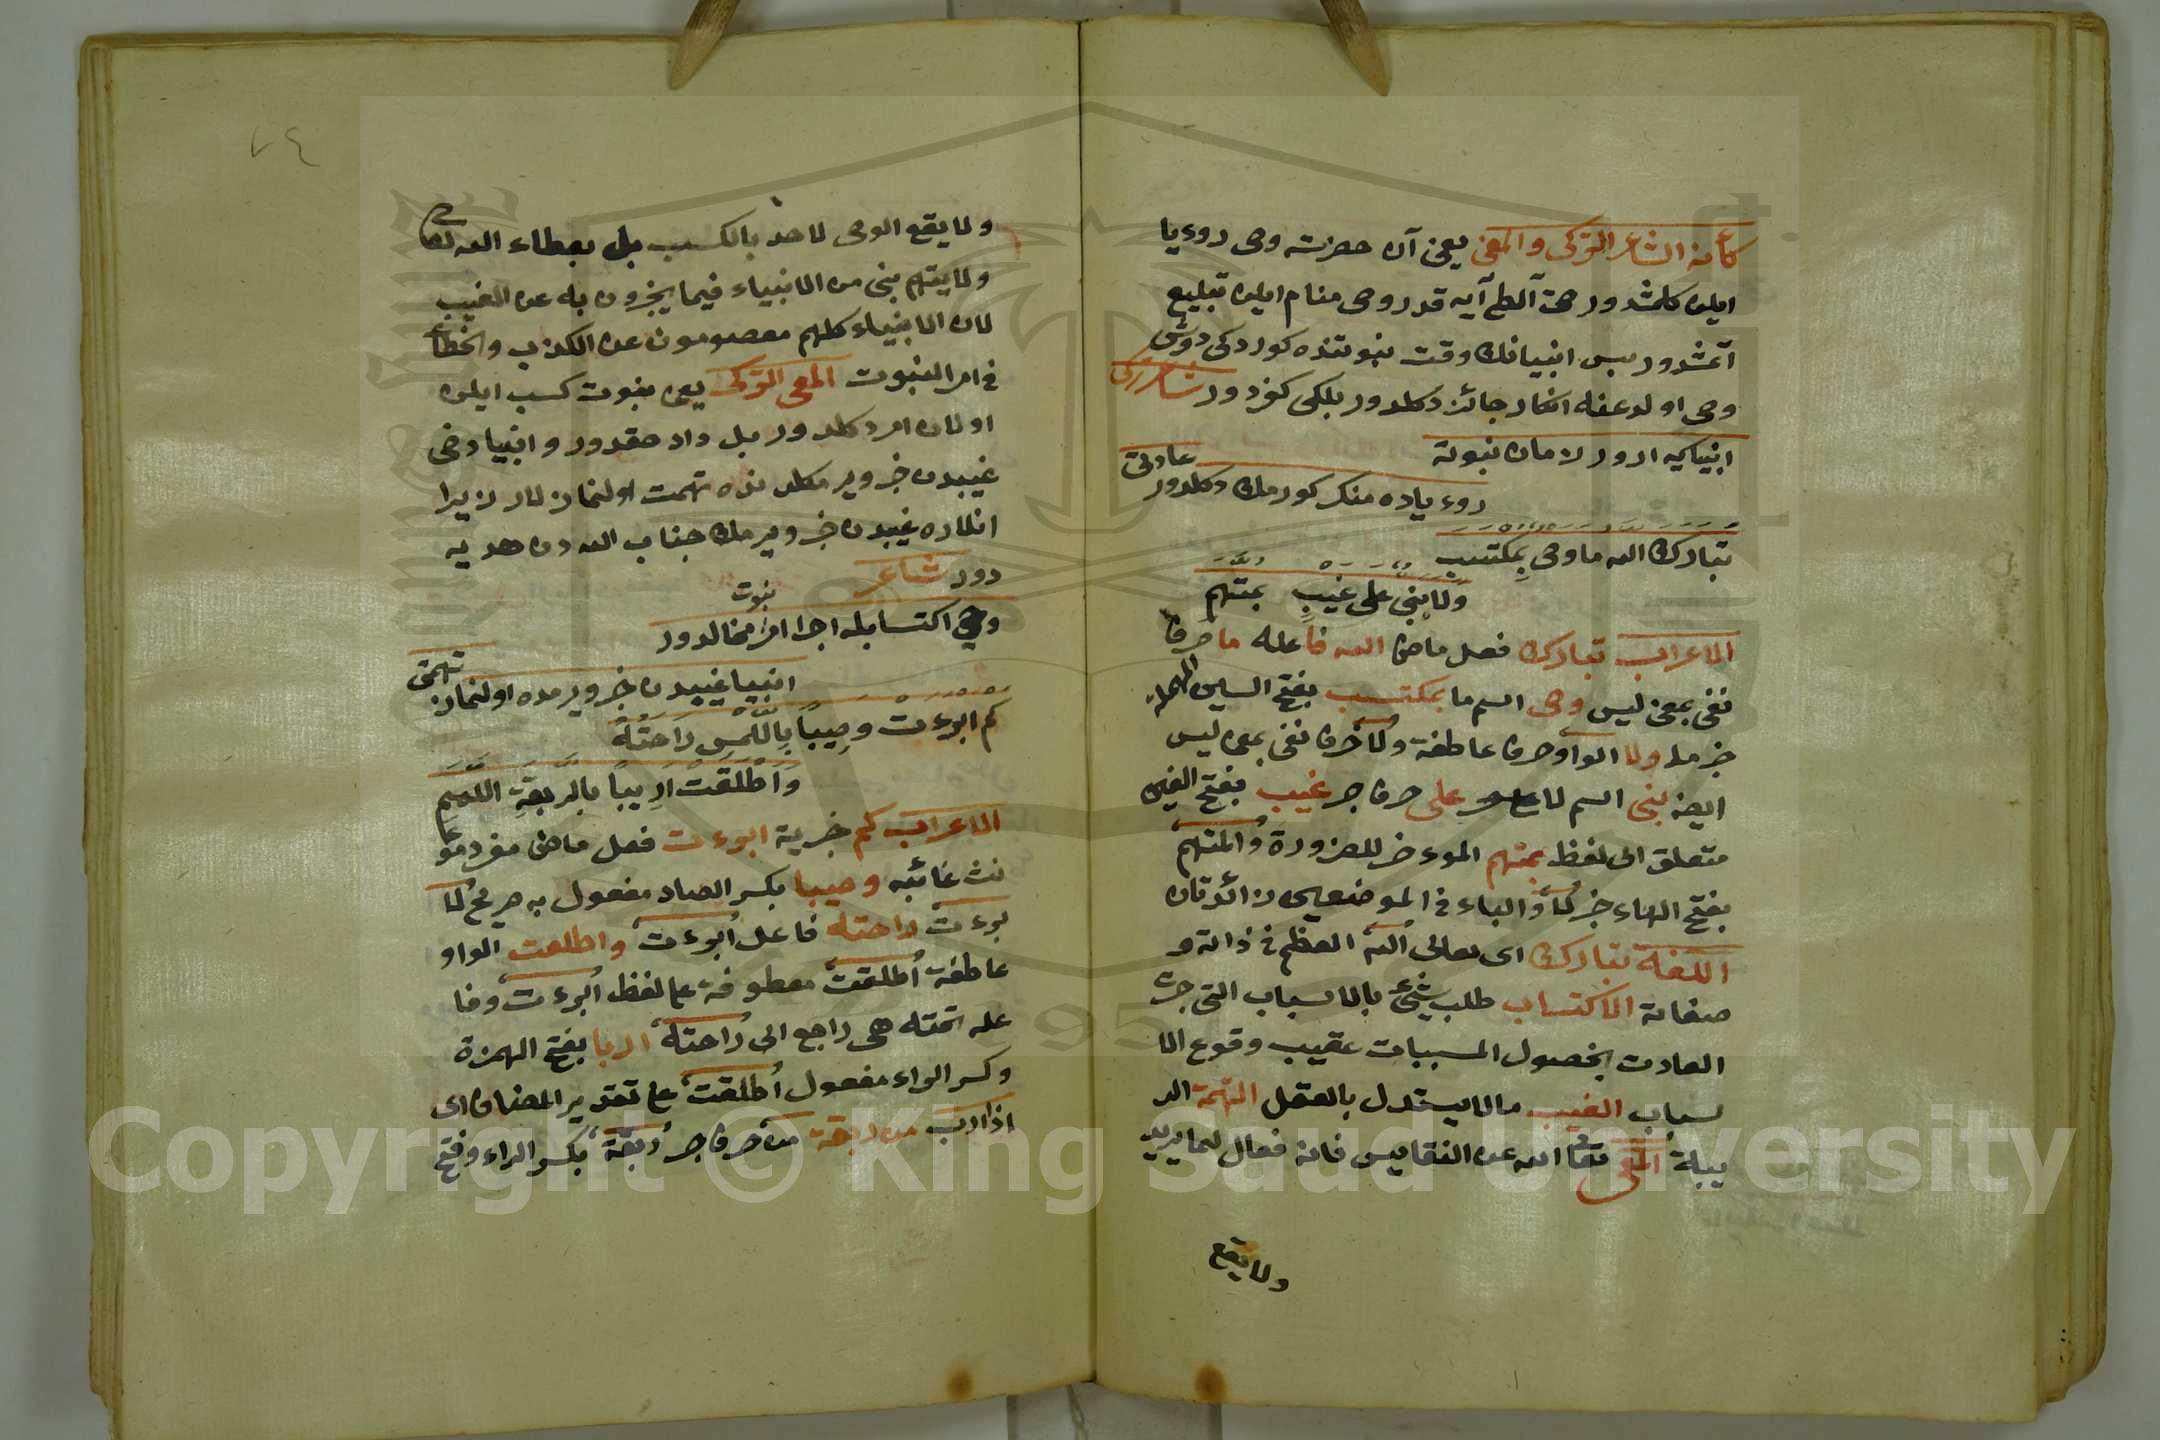 كأنه الشاعر التركى والمعنى يعنى آن حضرته وحى رويا
ايله كلمشدور حتى آلطى آيه قدر وحى منام ايله تبليغ
آتمشدور بس انبيانك وقت نبوتنده كوردكى دوش
وحى اولدغنه انكار جائز دكلدور بلكى كفردور شاعر تركى
انبيايه ارور لامان نبوته
رويا ده منكر كورمك دكلدور عادتى
تبارك الله ما وحى بمكتسب
ولا نبى على غيب بمتهم
الاعراب تبارك فعل ماض الله فاعله ما حرف
نفى بمعنى ليس وحى اسم ما بمكتسب بفتح السين المهملة
خبر ما ولا الواو حرف عاطفة ولا حرف نفى بمعنى ليس
ايضا نبى اسم لا على حرف جر غيب بفتح الغين
متعلق الى لفظ بمتهم الموءخر للضرورة والمتهم
بفتح الهاء خبر لا والباء فى الموضعين زائدتان
اللغة تبارك اى تعالى الله العظم فى ذاته و
صفاته الاكتساب طلب شئ بالاسباب التى جرت
العادت بحصول المسببات عقيب وقوع الا
سباب الغيب مالا يستدل بالعقل التهمة الر
يبة المعنى تعالى الله عن النقايص فانه فعال لما يريد
ولا يقع
٧٤
ولا يقع الوحى لاحد بالكسب بل بعطاء الله تعالى
ولا يتهم نبى من الانبياء فيما يخبرون به عن الغيب
لان الانبياء كلهم معصومون عن الكذب والخطاء
فى امر النبوت المعنى التركى يعنى نبوت كسب ايله
اولان امر دكلدور بل داد حقدور و انبيا دخى
غيبدن خبر ويرمكلرنده تهمت اولنمازلار زيرا
انلاره غيبدن خبر ويرمك جناب الله دن هديه
دور شاعر
وحى اكتسابله اجرا امر نبوت محالدور
انبيا غيبدن خبر ويرمده اولنماز تهمتى
كم ابرءت وصيبا باللمس راحته
واطلقت اربا من ربقة اللمم
الاعراب كم خبرية ابرءت فعل ماض مفرد مو
نث غائبه وصيبا بكسر الصاد مفعول به صريح لا
برءت راحته فاعل ابرءت واطلقت الواو
عاطفة اطلقت معطوفة على لفظ ابرءت وفا
عله تحته هى راجع الى راحته اربا بفتح الهمزة
وكسر الراء مفعول اطلقت على تقدير المضاف اى
اذا ارب من ربقة من حرف جر ربقة بكسر الراء وفتح